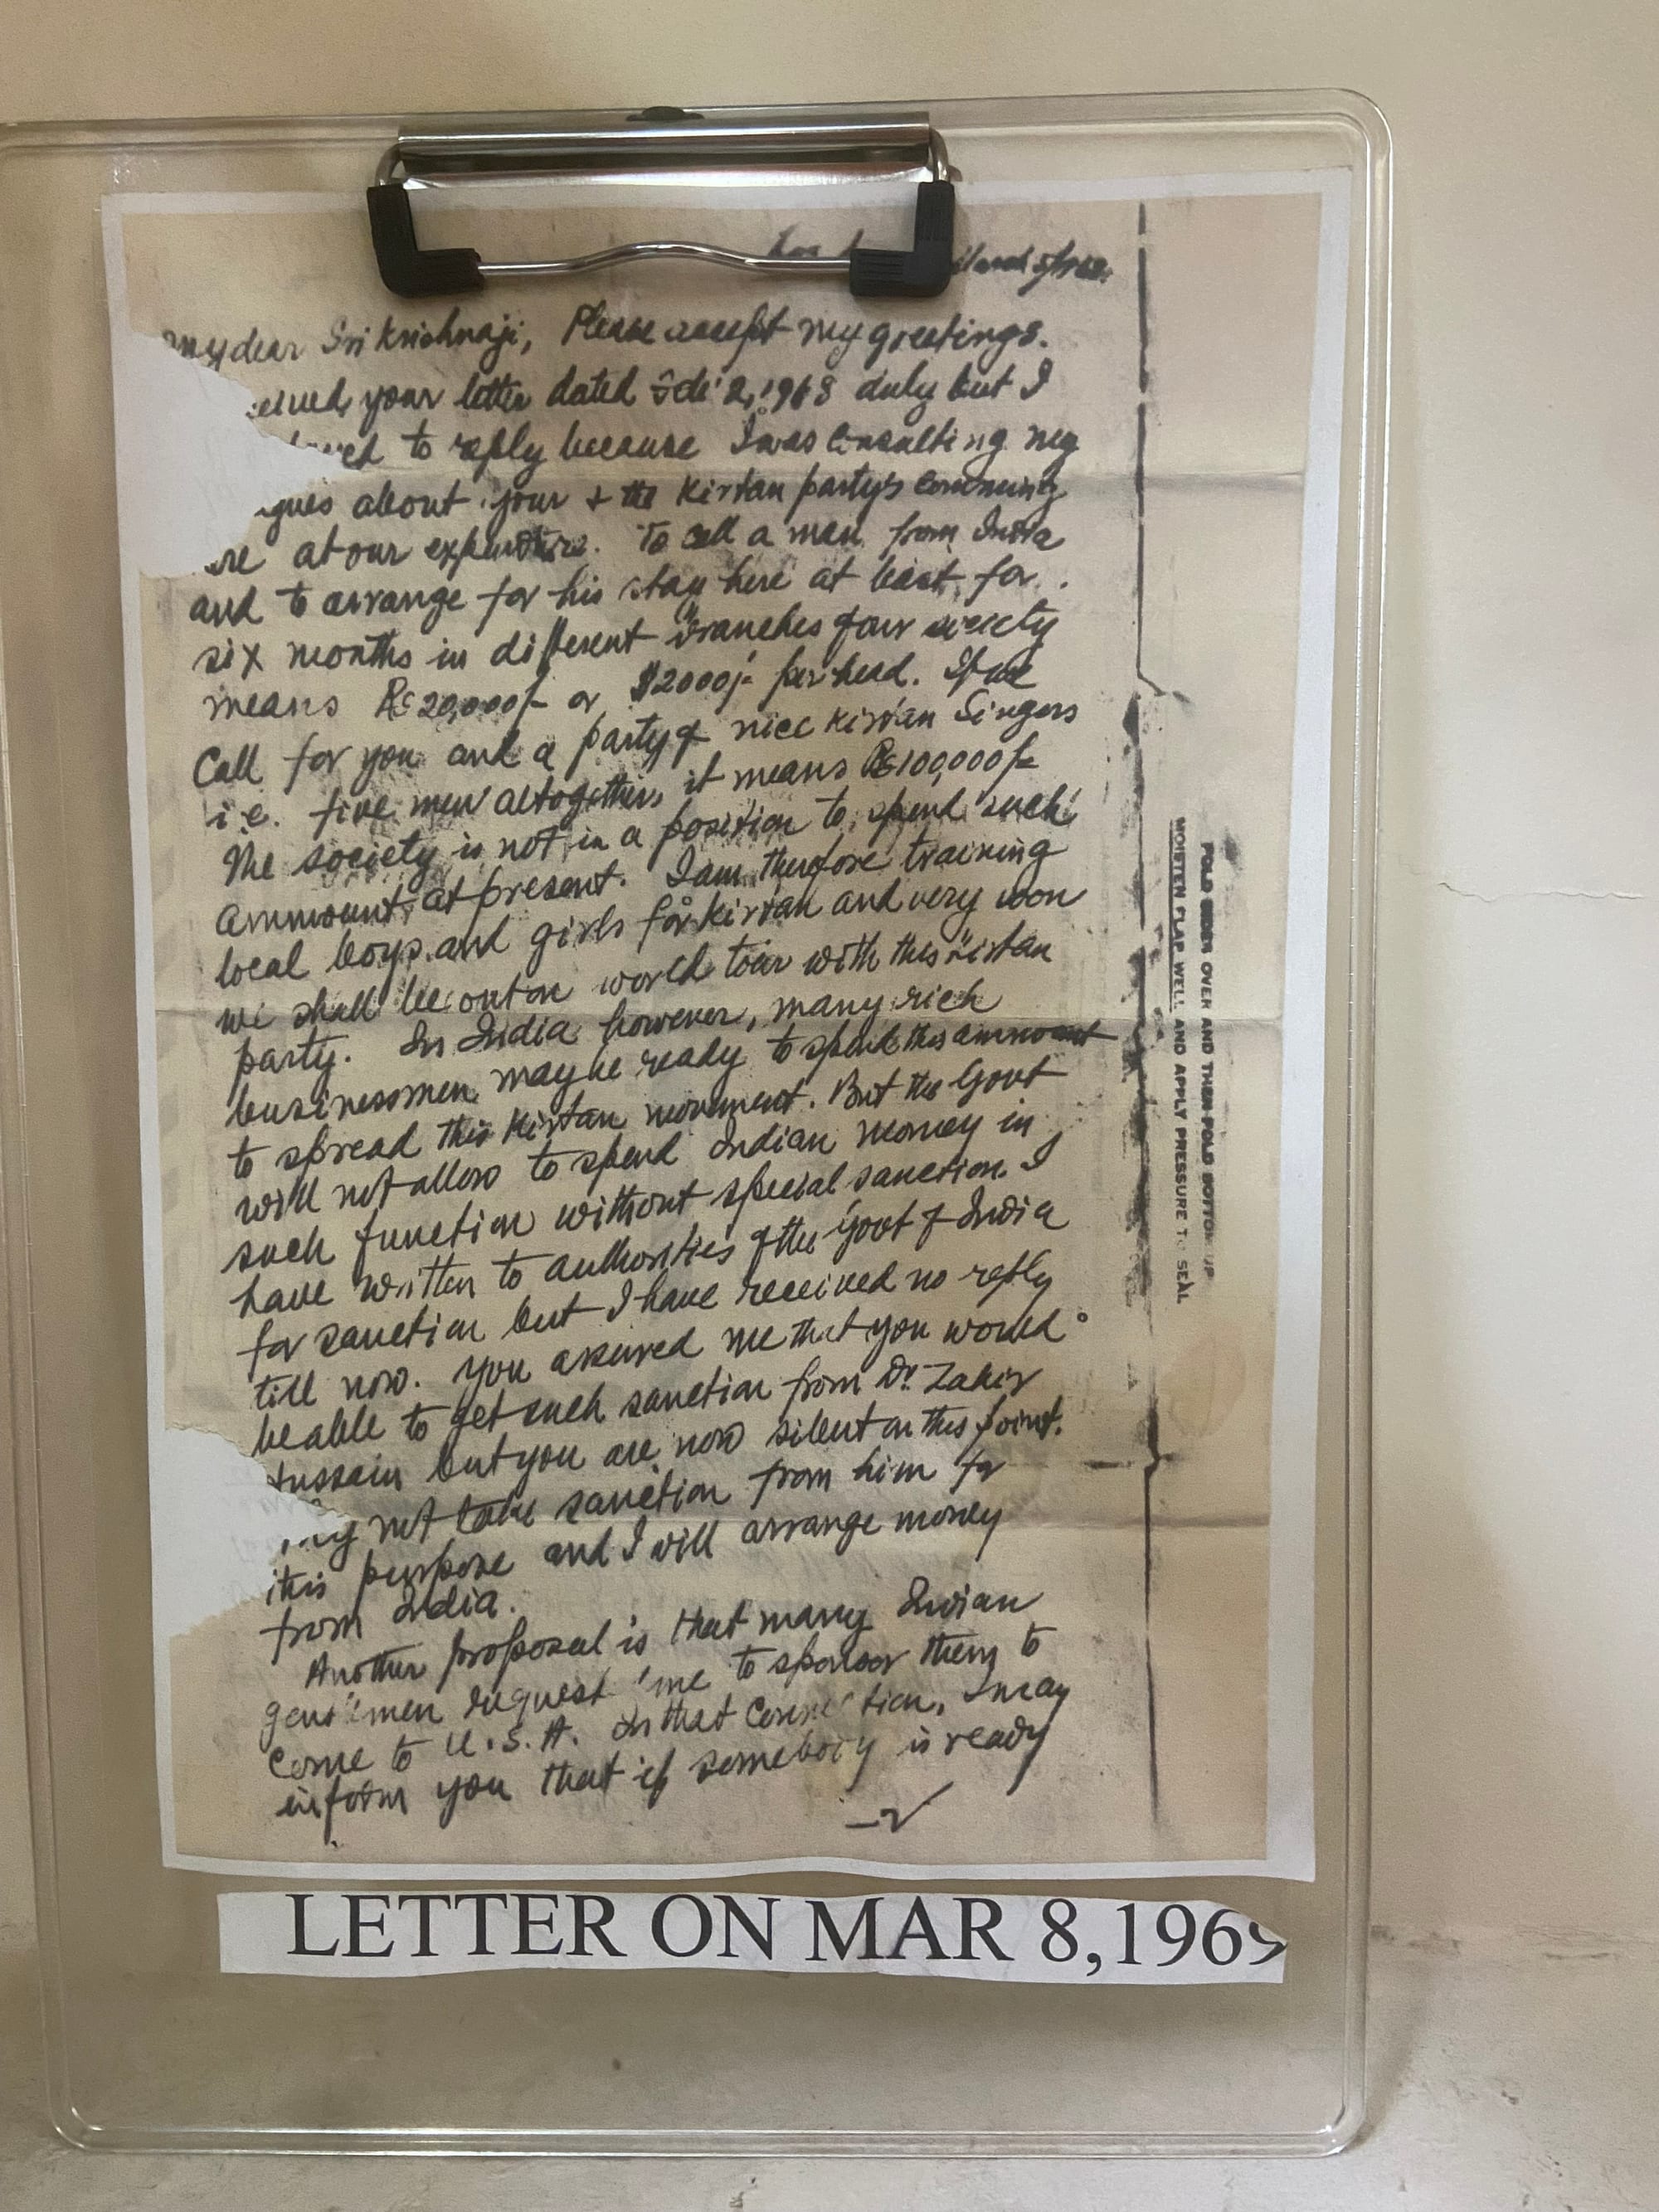 March 5/1968.
my dear Sri Krishnaji, Please accept my greetings.
your letter dated 2, 1968 duly but I
to reply because I was Consulting my
about your & the Kirtan party's comming
at our expenditure. To call a man from India
and to arrange for his stay here at least for
six months in different branches of our society
means Rs 20,000/- or $2000/- per head. If we
Call for you and a party of nice kirtan Singers
i.e. five men altogether, it means Rs 100,000/-
The society is not in a position to spend such
ammount at present. I am therefore training
local boys and girls for kirtan and very soon
we shall be out on world tour with this Kirtan
party. In India however, many rich
businessmen may be ready to spend this ammount
to spread this Kirtan movement. But the Govt
will not allow to spend Indian money in
such function without special sanction. I
have written to authorities of the Govt of India
for sanction but I have received no reply
till now. You assured me that you would
be able to get such sanction from Dr. Zakir
Hussain but you are now silent on this point.
not take sanction from him for
this purpose and I will arrange money
from India.
Another proposal is that many Indian
gentlemen request me to sponsor them to
come to U.S.A. In that Connection, I may
inform you that if somebody is ready
FOLD SIDES OVER AND THEN FOLD BOTTOM UP
MOISTEN FLAP WELL AND APPLY PRESSURE TO SEAL
LETTER ON MAR 8,1969